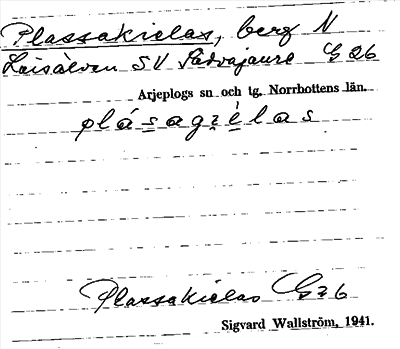 Plassakielas, berg N
Laisälven SV Sädvajaure G 26
Arjeplogs sn och tg. Norrbottens län.
plásagi̯èlas
Plassakielas G26
Sigvard Wallström, 1941.